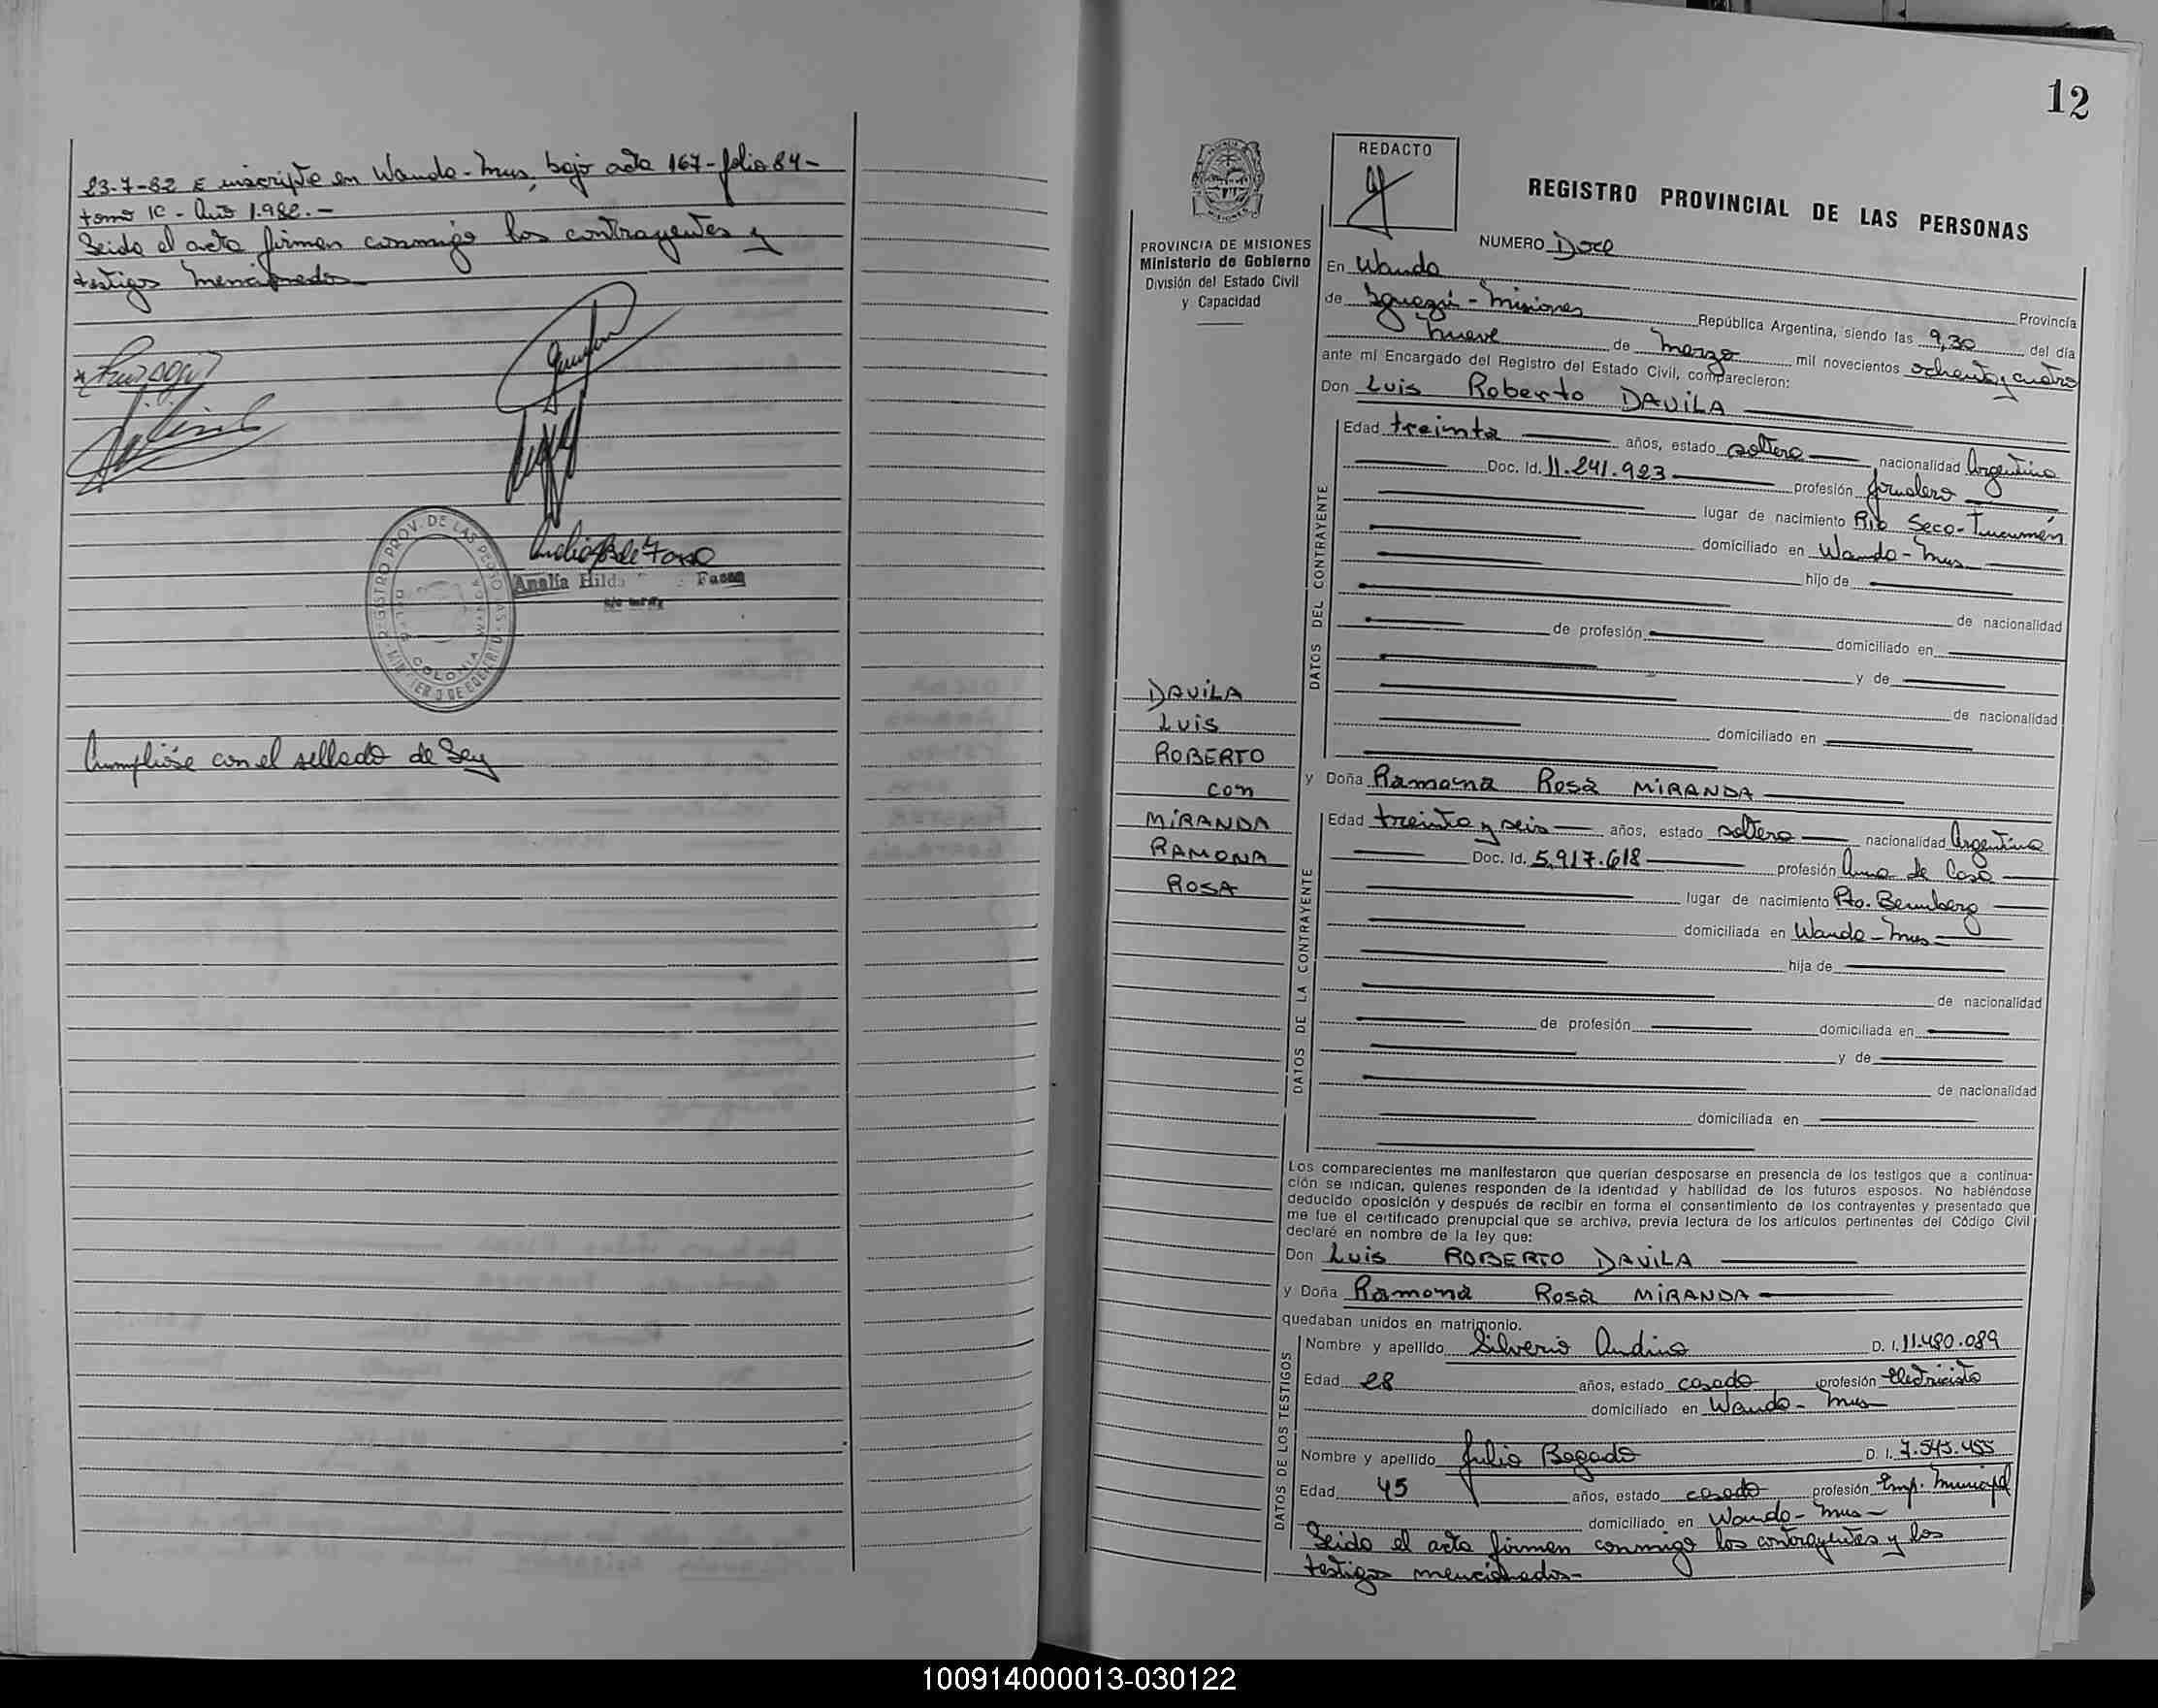 23-7-82 E inscripto en Wanda - Mnes, bajo acta 167 - folio 84 -
tomo 1C - Año 1.982. -
Leida el acta firman conmigo los contrayentes y
testigos mencionados
Analía Hilda Fasso
REGISTRO PROV. DE LAS PERSONAS
COLONIA WANDA
Cumpliose con el sellado de Ley
12
REDACTO
REGISTRO PROVINCIAL DE LAS PERSONAS
PROVINCIA DE MISIONES
Ministerio de Gobierno
División del Estado Civil
y Capacidad
NUMERO Doce
En Wanda
Provincia
de Iguazú - Misiones República Argentina, siendo las 9,30 del día
nueve de Marzo mil novecientos ochenta y cuatro
ante mi Encargado del Registro del Estado Civil, comparecieron:
Don Luis Roberto DAVILA
DATOS DEL CONTRAYENTE
Edad treinta años, estado soltero nacionalidad Argentina
Doc. Id. 11.241.923 profesión jornalero
lugar de nacimiento Rio Seco - Tucumén
domiciliado en Wanda - Mnes
hijo de
de nacionalidad
de profesión domiciliado en
y de
de nacionalidad
domiciliado en
DAVILA
LUIS
ROBERTO
con
MIRANDA
RAMONA
ROSA
y Doña Ramona Rosa MIRANDA
DATOS DE LA CONTRAYENTE
Edad treinta y seis años, estado soltera nacionalidad Argentina
Doc. Id. 5.917.618 profesión Ama de Casa
lugar de nacimiento Pto. Bemberg
domiciliada en Wanda - Mnes
hija de
de nacionalidad
de profesión domiciliada en
y de
de nacionalidad
domiciliada en
Los comparecientes me manifestaron que querían desposarse en presencia de los testigos que a continua-
ción se indican, quienes responden de la identidad y habilidad de los futuros esposos. No habiéndose
deducido oposición y después de recibir en forma el consentimiento de los contrayentes y presentado que
me fue el certificado prenupcial que se archiva, previa lectura de los artículos pertinentes del Código Civil
declaré en nombre de la ley que:
Don Luis ROBERTO DAVILA
y Doña Ramona Rosa MIRANDA
quedaban unidos en matrimonio.
DATOS DE LOS TESTIGOS
Nombre y apellido Silverio Andino D. I. 11.480.089
Edad 28 años, estado casado profesión electricista
domiciliado en Wanda - Mnes
Nombre y apellido Julio Bogado D. I. 7.545.455
Edad 45 años, estado casado profesión Emp. Municipal
domiciliado en Wanda - Mnes
Leida el acta firman conmigo los contrayentes y los
testigos mencionados-
100914000013-030122